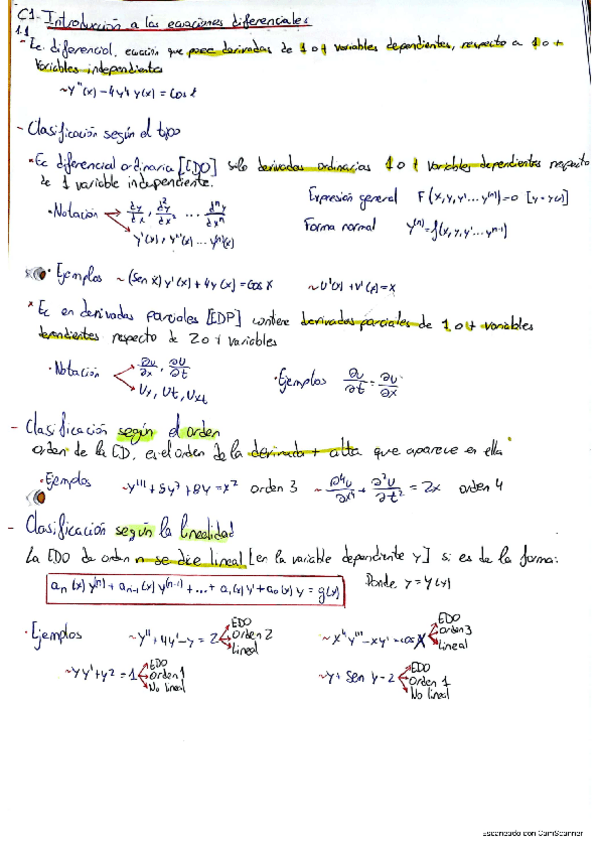 C1- Introducción a las ecuaciones diferenciales
1.1
- Ec diferencial, ecuación que posee derivadas de 1 o + variables dependientes, respecto a 1 o +
variables independientes
~ y''(x) - 4y'4 y(x) = cos t
- Clasificación según el tipo
* Ec diferencial ordinaria [EDO] solo derivadas ordinarias 1 o + variables dependientes respecto
de 1 variable independiente.
Expresión general F(x,y,y'...y⁽ⁿ⁾)=0 [y=y(x)]
· Notación dy/dx, d²y/dx² ... dⁿy/dxⁿ
y'(x), y''(x)...y⁽ⁿ⁾(x)
Forma normal y⁽ⁿ⁾=f(x,y,y'...yⁿ⁻¹)
· Ejemplos ~ (sen x) y'(x) + 4y(x) = cos x ~ u'(x) + v'(x) = x
* Ec en derivadas parciales [EDP] contiene derivadas parciales de 1 o + variables
dependientes respecto de 2 o + variables
· Notación ∂u/∂x, ∂u/∂t
Ux, Ut, Uxt
· Ejemplos ∂u/∂t = ∂u/∂x
- Clasificación según el orden
orden de la ED, es el orden de la derivada + alta que aparece en ella
· Ejemplos ~ y''' + 5y' + 8y = x² orden 3 ~ ∂⁴u/∂x⁴ + ∂²u/∂t² = 2x orden 4
- Clasificación según la linealidad
La EDO de orden n se dice lineal [en la variable dependiente y] si es de la forma:
aₙ(x) y⁽ⁿ⁾ + aₙ₋₁(x) y⁽ⁿ⁻¹⁾ + ... + a₁(x) y' + a₀(x) y = g(x) Donde y = y(x)
· Ejemplos ~ y'' + 4y' - y = 2 EDO Orden 2 Lineal
~ x⁴y''' - xy' = cos x EDO Orden 3 Lineal
~ yy' + y² = 1 EDO Orden 1 No lineal
~ y + sen y - 2 EDO Orden 1 No lineal
Escaneado con CamScanner